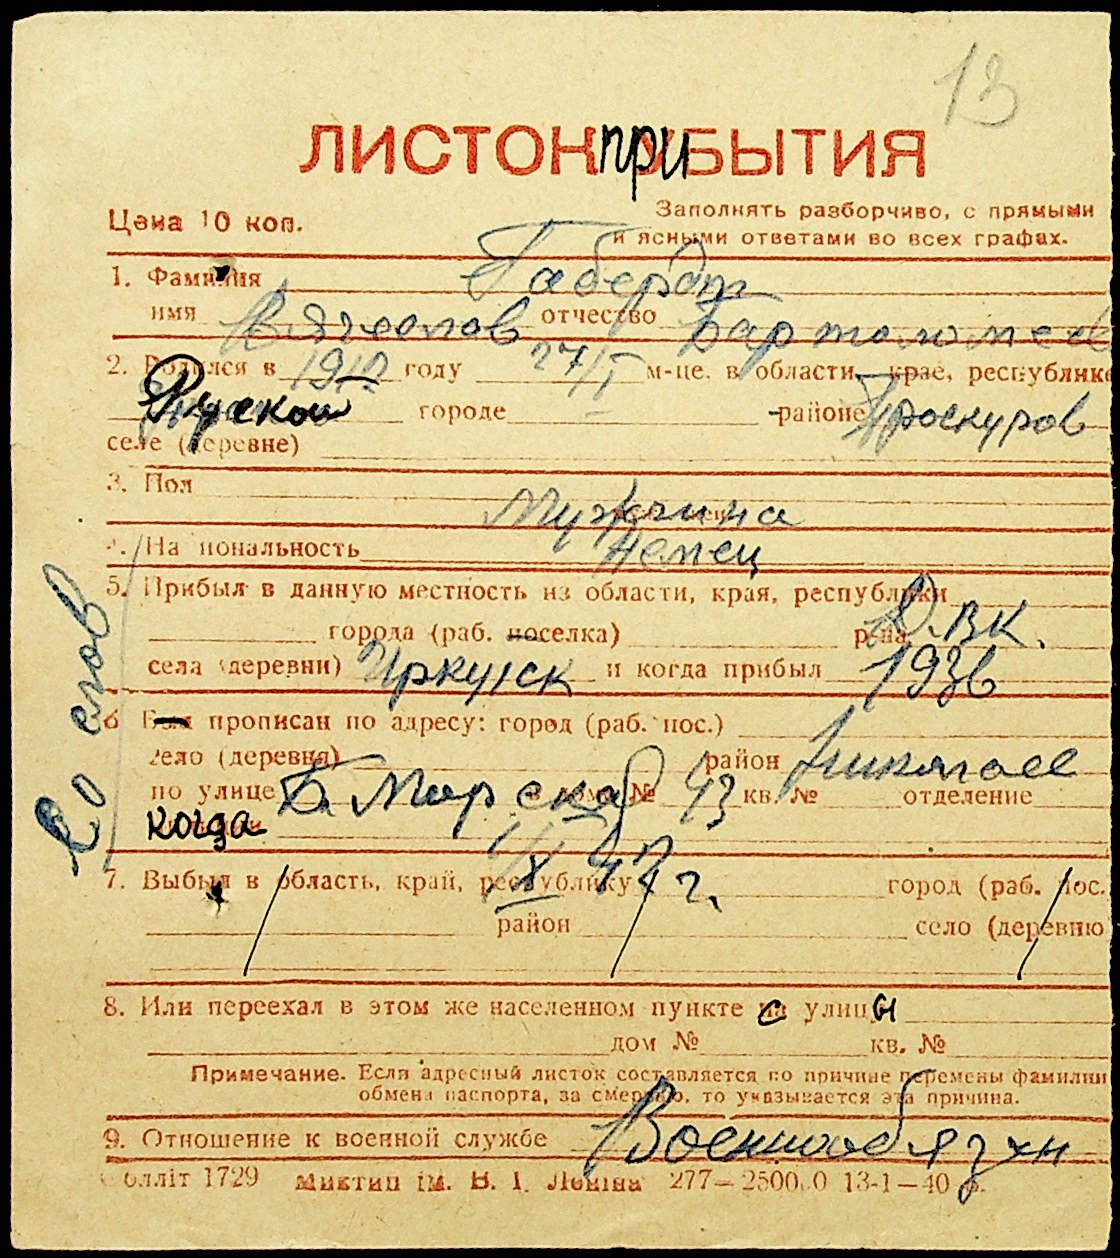 13
ЛИСТОК ПРИБЫТИЯ
Цена 10 коп.
Заполнять разборчиво, с прямыми
и ясными ответами во всех графах.
1. Фамилия Габердт
имя Вячеслав отчество Бартоломеев
2. Родился в 1912 году 27/I м-це, в области, крае, республике
городе районе Проскуров
селе (деревне)
3. Пол Мужчина
4. Национальность Немец
5. Прибыл в данную местность из области, края, республики
города (раб. поселка) р-на Д.ВК.
села (деревни) Иркутск и когда прибыл 1936
Со слов
6 Был прописан по адресу: город (раб. пос.)
село (деревня) район Николаев
по улице Б. Морская дом № 43 кв. № отделение
когда
1/X 42 г.
7. Выбыл в область, край, республику город (раб. пос.
район село (деревню
8. Или переехал в этом же населенном пункте с улицы
дом № кв. №
Примечание. Если адресный листок составляется по причине перемены фамилии
обмена паспорта, за смертью, то указывается эта причина.
9. Отношение к военной службе Военнообязан
Облліт 1729 Миктип ім. В. І. Леніна 277—250000 13-1—40 р.